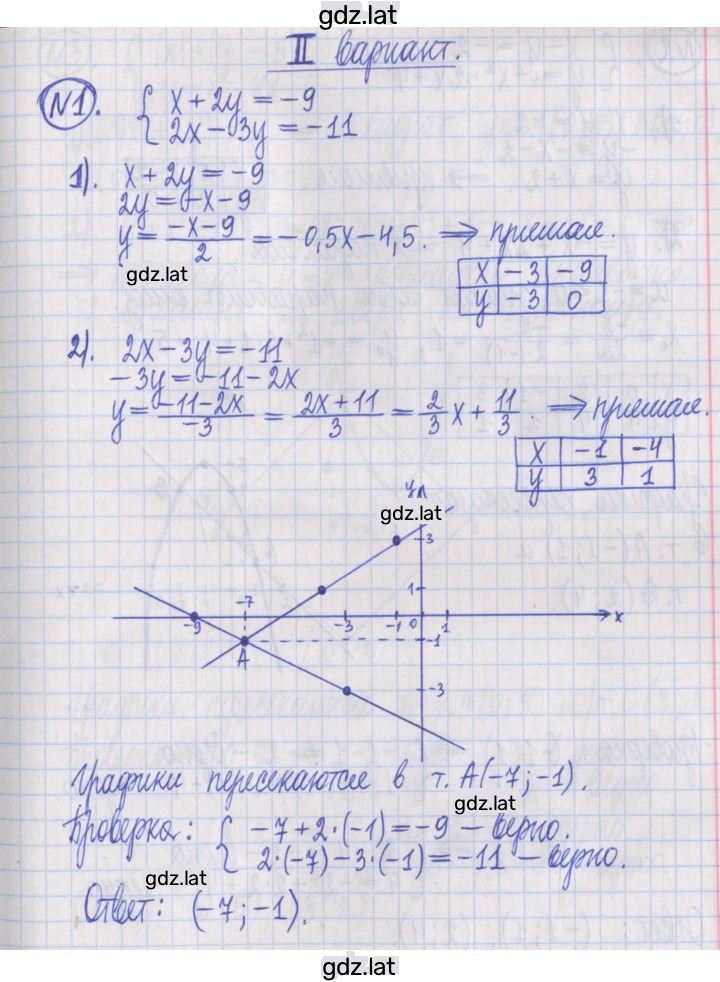 gdz.lat
II вариант.
N1. { x + 2y = -9
2x - 3y = -11
1). x + 2y = -9
2y = -x - 9
y = (-x - 9)/2 = -0,5x - 4,5. ⟹ прямая.
gdz.lat
x | -3 | -9
y | -3 | 0
2). 2x - 3y = -11
-3y = -11 - 2x
y = (-11 - 2x)/(-3) = (2x + 11)/3 = 2/3 x + 11/3. ⟹ прямая.
x | -1 | -4
y | 3 | 1
y
gdz.lat
3
1
-7
-9 -3 -1 0 1 x
-1
A
-3
Графики пересекаются в т. A(-7; -1).
gdz.lat
Проверка: { -7 + 2·(-1) = -9 – верно.
2·(-7) - 3·(-1) = -11 – верно.
gdz.lat
Ответ: (-7; -1).
gdz.lat